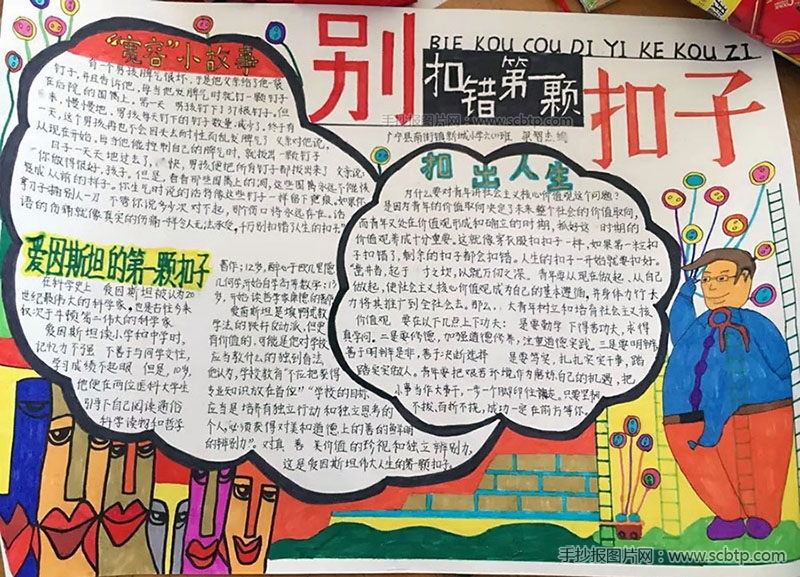 BIE KOU COU DI YI KE KOU ZI
别
扣错第一颗
扣子
手抄报图片网:www.scbtp.com
广宁县南街镇新城小学六01班
"宽容"小故事
有一个男孩脾气很坏,于是他父亲给了他一袋
钉子,并且告诉他,每当他发脾气时就钉一颗钉子
在后院的围篱上。第一天 男孩钉下了37根钉子。但
来,慢慢地,男孩每天钉下的钉子数量减少了。终于有
一天,这个男孩再也不会因失去耐性而乱发脾气了 父亲对他说,
从现在开始,每当他能控制自己的脾气时,就拔出一颗钉子
日子一天天地过去了,
你做得很好,孩子。但是,看看那些围篱上的洞,这些围篱永远不能恢复
成从前的样子。你生气时说的话将像这些钉子一样留下疤痕。如果你
拿刀子捅别人一刀 不管你说多少次对不起,那个伤口将永远存在。话
语的伤痛就像真实的伤痛一样令人无法承受。千万别扣错了人生的扣子"
爱因斯坦的第一颗扣子
在科学史上 爱因斯坦被认为20
世纪最伟大的科学家。也是古往今来
仅次于牛顿第一伟大的科学家
爱因斯坦读小学和中学时,
记忆力不强 不善于与同学交往,
学习成绩不起眼 但是,10岁,
他便在两位医科大学生
引导下自己阅读通俗
科学读物和哲学
著作;12岁,
几何学,开始自学高等数学;13
岁,开始读哲学家康德的著作
爱因斯坦是填鸭式教
学法的
有价值的,可能是他对学校
应当教什么的独到看法。
他认为,学校教育"不应把获得
专业知识放在首位""学校的目标
应当是培养有独立行动和独立思考的
个人,必须获得对美和道德上的善的鲜明
的辨别力"。对真 善 美价值的珍视和独立辨别力,
这是爱因斯坦伟大人生的第一颗扣子。
扣出人生
为什么要对青年讲社会主义核心价值观这个问题?
是因为青年的价值取向决定了未来整个社会的价值取向,
而青年又处在价值观形成和确立的时期,抓好这一时期的
价值观养成十分重要。这就像穿衣服扣扣子一样,如果第一粒扣
子扣错了,剩余的扣子都会扣错。人生的扣子一开始就要扣好。
青年要从现在做起、从自
己做起,使社会主义核心价值观成为自己的基本遵循,并身体力行大
力将其推广到全社会去。那么,
价值观 要在以下几点上下功夫: 是要勤学 下得苦功夫,求得
真学问。二是要修德,加强道德修养,注重道德实践。三是要明辨
善于明辨是非,善于决断选择 是要笃实,扎扎实实干事,踏
踏实实做人。青年要把艰苦环境作为磨炼自己的机遇,把
小事当作大事干,一步一个脚印往前走。只要坚韧
不拔、百折不挠,成功一定在前方等你。
手抄报图片网:www.scbtp.com